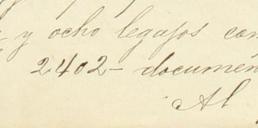 y ocho legajos con
2402 - documen
Al